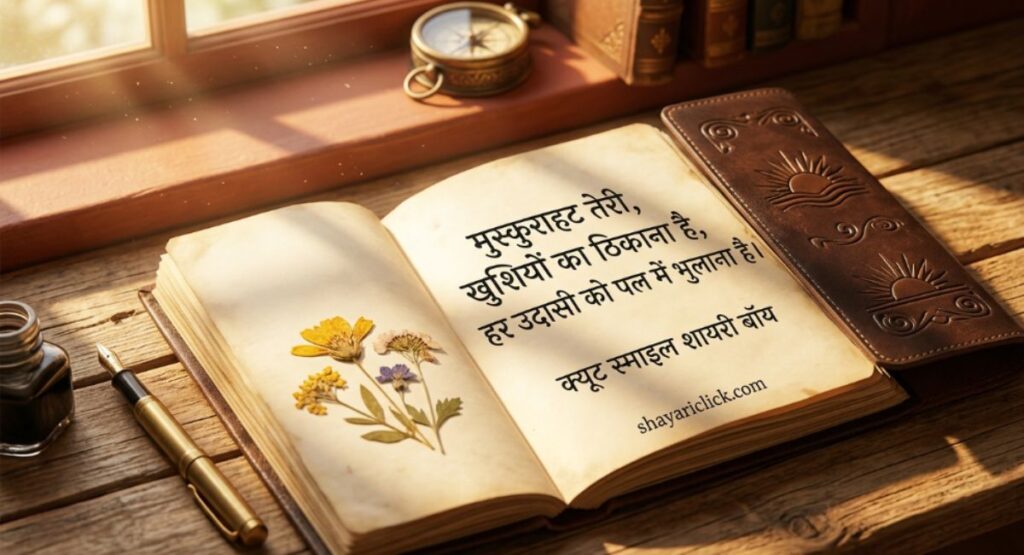 मुस्कुराहट तेरी,
खुशियों का ठिकाना है,
हर उदासी को पल में भुलाना है।
क्यूट स्माइल शायरी बॉय
shayariclick.com